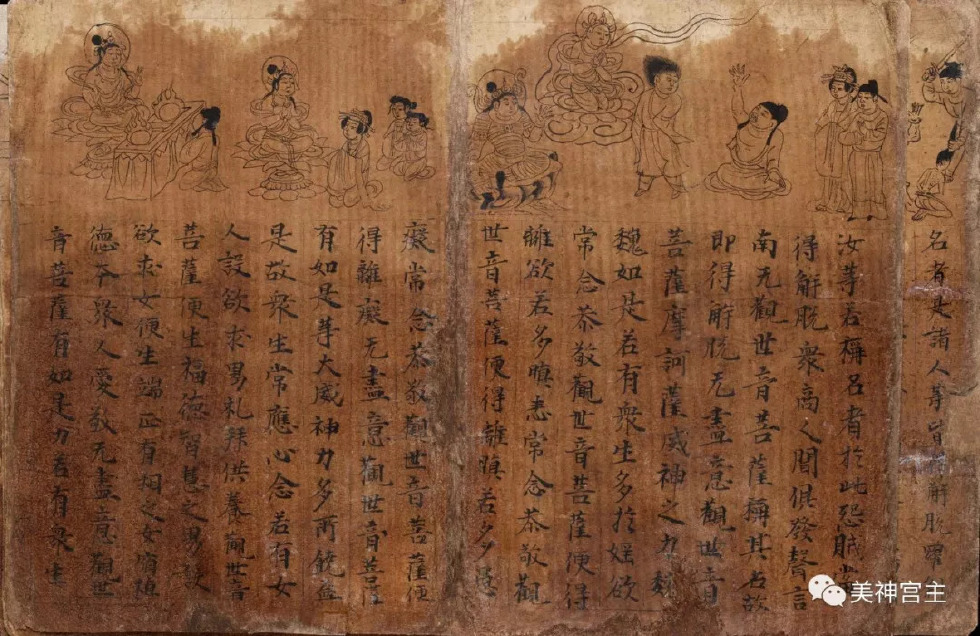 名者是諸人等皆得解脫羅
汝等若稱名者於此怨賊當
得解脫衆商人聞俱發聲言
南无觀世音菩薩稱其名故
即得解脫无盡意觀世音
菩薩摩訶薩威神之力魏
魏如是若有衆生多於婬欲
常念恭敬觀世音菩薩便得
離欲若多瞋恚常念恭敬觀
世音菩薩便得離瞋若多愚
癡常念恭敬觀世音菩薩便
得離癡无盡意觀世音菩薩
有如是等大威神力多所饒益
是故衆生常應心念若有女
人設欲求男礼拜供養觀世音
菩薩便生福德智慧之男設
欲求女便生端正有相之女宿殖
德本衆人愛敬无盡意觀世
音菩薩有如是力若有衆生
美神宫主